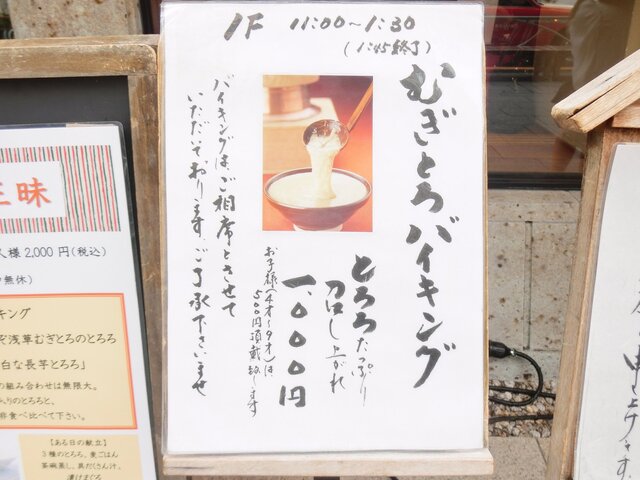 1F 11:00~1:30
(1:45終了)
むぎとろバイキング
とろろたっぷり
召し上がれ
一、000円
お子様(4才~9才)は
500円頂戴致します
バイキングは、ご相席とさせて
いただいております ご了承下さいませ
三昧
人様 2,000 円(税込)
無休)
キング
ぞ浅草むぎとろのとろろ
白な長芋とろろ」
の組み合わせは無限大。
入りのとろろと、
非食べ比べて下さい。
【ある日の献立】
3種のとろろ、麦ごはん
茶碗蒸し、具だくさん汁、
漬けまぐろ
申し上げます